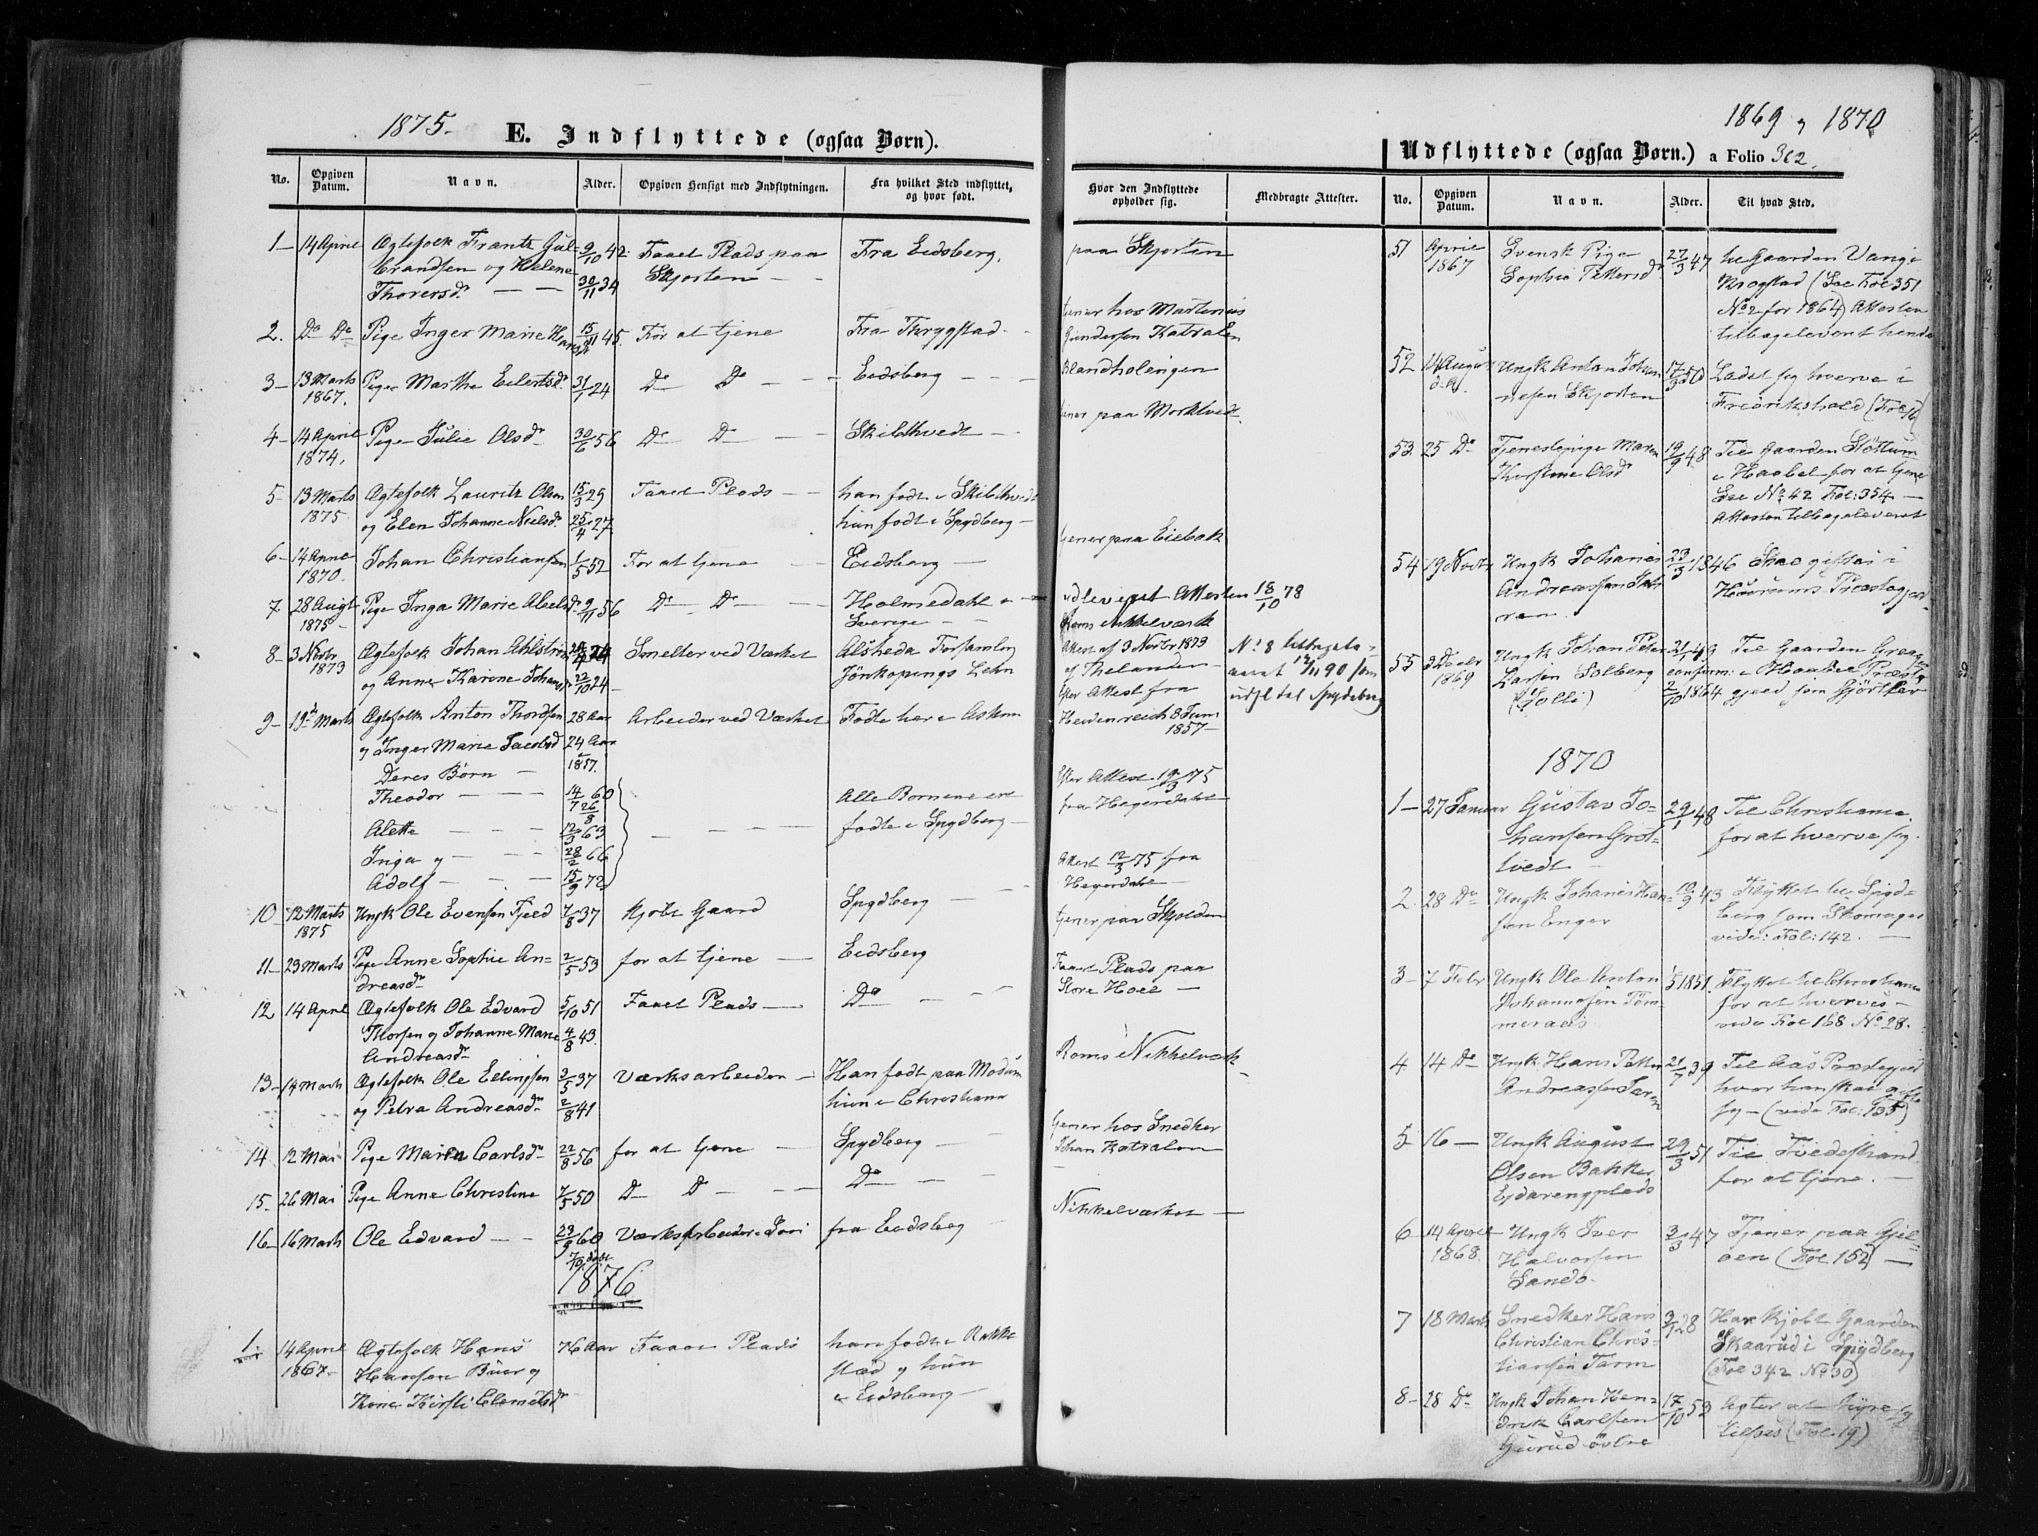 1875.
E. Indflyttede (ogsaa Børn).
No.
Opgiven Datum.
Navn.
Alder.
Opgiven Hensigt med Indflytningen.
Fra hvilket Sted indflyttet, og hvor født.
1 – 14 April Ægtefolk Frantz Gul- 9/10 42. Faaet Plads paa Fra Eidsberg.
brandsen og Helene Skjorten
Thorersdr. 30/11 34
2. Do Do Pige Inger Marie 15/11 45. For at tjene Fra Thrygstad
3 – 13 Marts Pige Marthe Eilertsdr. 31/1 24 Do Do Eidsberg
1867.
4 – 14 April Pige Julie Olsdr 30/6 56 Do Do Skibthvedt
1874.
5 – 13 Marts Ægtefolk Lauritz Olsen 15/3 29 Faaet Plads han født i Skibthvedt
1875 og Elen Johanne Nielsdr 25/4 27. hun født i Spydberg
6 – 14 April Johan Christiansen 1/5 52 For at tjene Eidsberg
1870.
7 28 Augt Pige Inga Marie Abelsdr 9/11 56 Do Do Holmedahl i
1875 Sverige
8 – 3 Novbr Ægtefolk Johan Ahlström 24 Smelter ved Værket Alsheda Forsamling
1873 og Anne Karine Johansdr 22/10 24 Jönkopings Lehn
9 – 19de Marts Ægtefolk Anton Thordsen 28 Aar Arbeider ved Værket Fødte her i Askim
og Inger Marie Jacobsd 24 Aar
1857.
Deres Børn
Theodor 14/7 60 Alle Børnene ere
26/8
Alette 12/3 63 fødte i Spydberg
Inga og 28/2 66
Adolf 15/9 72
10 – 12 Marts Ungk Ole Evensen Fjeld 7/8 37 Kjøbt Gaard Spydberg
1875
11 – 23 Marts Pige Anne Sophie An- 2/5 53 for at tjene Eidsberg
dreasdr
12 14 April Ægtefolk Ole Edvard 5/10 51 Faaet Plads Do
Thorsen og Johanne Marie 4/8 43.
Andreasdr
13 – 14 Marts Ægtefolk Ole Ellingsen 3/5 37 Værksarbeider Han født paa Modum
og Petra Andreasdr 2/8 41 hun i Christiania
14 12 Mai Pige Maria Carlsdr 22/8 56 for at tjene Spydberg
15. 26 Mai Pige Anne Christine 7/5 50 D D Do
16 – 16 Marts Ole Edvard 23/9 60 Værksarbeider fra Eidsberg
1876
1. 14 April Ægtefolk Hans 76 Aar Faaet Plads han født i Rakke-
1867. Hansen Buer og stad og hun
Kone Kirsti Clemetsdr i Eidsberg
Hvor den Indflyttede opholder sig.
Medbragte Attester.
paa Skjorten
tjener hos Martinius
Gundersen Katralen
Blandholengen
tjener paa Morktvedt
tjener paa Eiebak
udleveret Attesten 18/10 78
Roms Nikkelværk
Attest af 3 Novbr 1873 No. 8
af Thelander 12/11 90 som
Efter Attest fra udfl til Spydeberg
Heidenreich 8 Juni
1857
Efter Attest 19/3 75
fra Hegerdahl
Attest 12/3 75 fra
Hegerdahl
tjener paa Skjolden
Faaet Plads paa
Store Hoel
Roms Nikkelværk
tjener hos Snedker
Johan Katralen
Nikkelværket
1869 og 1870
Udflyttede (ogsaa Børn.) a Folio 362.
No.
Opgiven Datum.
Navn.
Alder.
Til hvad Sted.
51 April Svensk Pige 27/3 47 til Gaarden Vang i
1867 Sophia Pettersdr Krogstad (See Fol 351
No 2 for 1864) Attesten
tilbageleveret hende
52 14 August Ungk Anton Johan- 17/3 50 Ladet sig hverve i
d.A. nesen Skjorten Fredrikshald
53 25 Do Tjenestepige Maren 19/9 48 Til Gaarden Slöttum
Thorstine Olsdr i Haabøl for at tjene
See No 42 Fol: 354
Attesten tilbageleveret
54 19 Novbr Ungk Johanes 23/3 1846 Skal giftes i
Andreassen Præstegj.
55 3 Decbr Ungk Johan Peter 21/1 49 Til Gaarden
1869 Larsen Solberg confirm: i Haabøl Præste-
(Solli) 2/10 1864 gjeld som
1870
1 – 27 Januar Gustav Jo- 29/1 48 Til Christiania
hansen Grøt- for at hverve sig.
vedt
2. 28 Do Ungk Johanes Han- 10/9 43 Flyttet til Spyd-
sen Enger berg som Skomager
vide: Fol: 142.
3 – 7 Febr Ungk Ole Anton 1/5 1851. Flyttet til Christiania
Johannesen Töm- for at hverves
meraas vide Fol 168 No 28.
4 14 Do Ungk Hans Petter 21/7 39 Til Aas Præstegjeld
Andreassen hvor han skal gifte
sig – (vide Fol: 135)
5 16 – Ungk August 29/3 51 Til Tvedestrand
Olsen Bakker for at tjene.
6 14 April Ungk Iver 2/3 47 Tjener paa Gjel-
1868. Halvorsen øen (Fol 152)
Sando
7 18 Marts Snedker Hans 3/1 28 Har kjøbt Gaarden
Christian Chris- Skaarud i Spydberg
tiansen (Fol 342 No 30)
8 – 28 Do Ungk Johan Hen- 17/10 52 Agter at hyre sig
drik Carlsen tilsøes (Fol. 19)
Gurud övtre